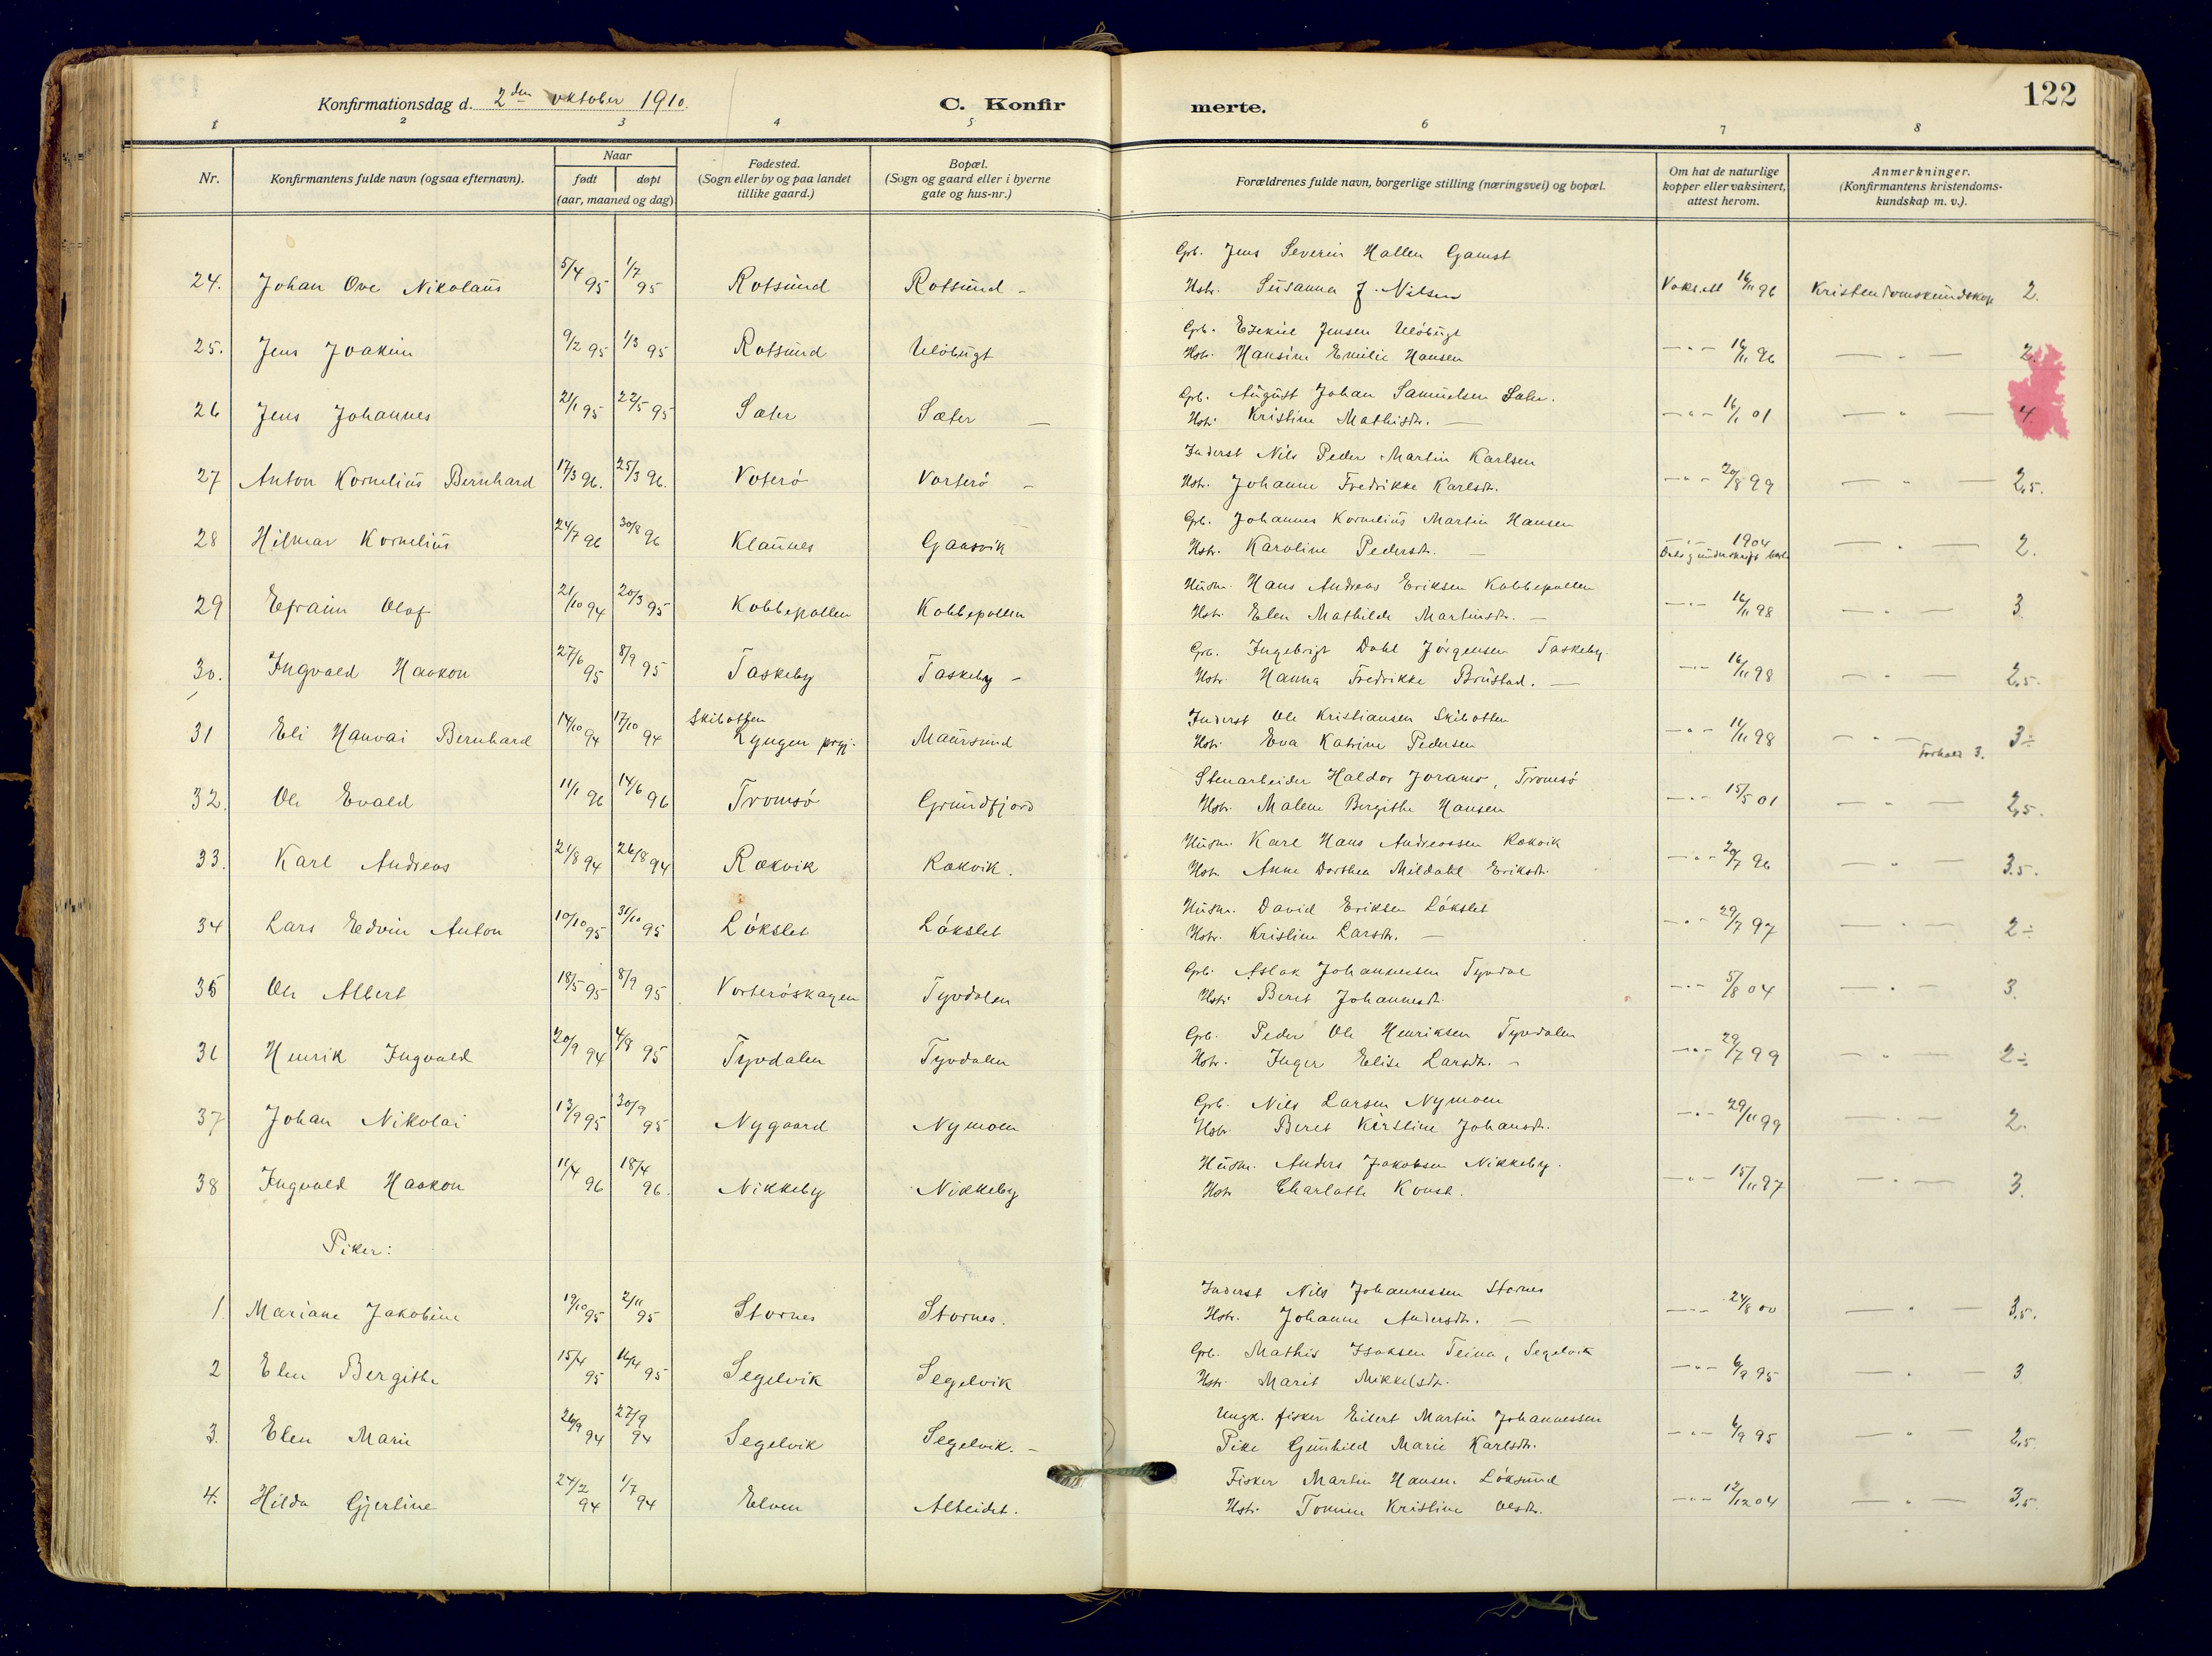 122
Konfirmationsdag d. 2den oktober 1910.
C. Konfir merte.
1 2 3 4 5 6 7 8
Nr.
Konfirmantens fulde navn (ogsaa efternavn).
Naar
født døpt
(aar, maaned og dag)
Fødested.
(Sogn eller by og paa landet
tillike gaard.)
Bopæl.
(Sogn og gaard eller i byerne
gate og hus-nr.)
Forældrenes fulde navn, borgerlige stilling (næringsvei) og bopæl.
Om hat de naturlige
kopper eller vaksinert,
attest herom.
Anmerkninger.
(Konfirmantens kristendoms-
kundskap m. v.).
Grb. Jens Severin Hallen Gamst
24. Johan Ove Nikolaus 5/4 95 1/7 95 Rotsund Rotsund - Hstr. Susanna J. Nilsen Vaks.att 16/11 96 Kristendomskundskap 2.
Grb. Esekiel Jensen Uløbugt
25. Jens Joakim 9/2 95 1/3 95 Rotsund Uløbugt Hstr. Hansine Emilie Hansen —"— 16/11 96 — " — 2.
Grb. August Johan Samuelsen Sæter.
26 Jens Johannes 21/1 95 22/5 95 Sæter Sæter — Hstr. Kristine Mathisdtr. — —"— 16/1 01 — " — 4.
Inderst Nils Peder Martin Karlsen
27 Anton Kornelius Bernhard 17/3 96. 25/3 96. Voterø Vorterø - Hstr. Johanne Fredrikke Karlsdtr. —"— 20/8 99 — " — 2,5.
Grb. Johannes Kornelius Martin Hansen
28 Hilmar Kornelius 24/7 96 30/8 96 Klaunes Gaasvik Hstr. Karoline Pedersdtr. — —"— 1904 — " — 2.
Husm. Hans Andreas Eriksen Kobbepollen
29 Efraim Olaf 21/10 94 20/3 95 Kobbepollen Kobbepollen Hstr. Elen Mathilde Martinsdtr. — —"— 16/11 98 — " — 3
Grb. Ingebrigt Dahl Jørgensen Taskeby.
30. Ingvald Haakon 27/6 95 8/9 95 Taskeby Taskeby - Hstr. Hanna Fredrikke Brustad. — —"— 16/11 98 — " — 2,5.
Skibotten Inderst Ole Kristiansen Skibotten
31 Eli Hanvai Bernhard 14/10 94 17/10 94 Lyngen prgj. Maursund Hstr. Eva Katrine Pedersen —"— 11/11 98 — " — 3÷
Forhold 3.
Stenarbeider Haldor Joramo, Tromsø
32. Ole Evald 11/1 96 14/6 96 Tromsø Grundfjord Hstr. Malene Bergithe Hansen —"— 15/5 01 — " — 2,5.
Husm. Karl Hans Andreassen Rakvik
33. Karl Andreas 21/8 94 26/8 94 Rakvik Rakvik. Hstr. Anne Dorthea Mildahl Eriksdtr. —"— 20/7 96 — " — 3.5.
Husm. David Eriksen Løkslet
34 Lars Edvin Anton 10/10 95 31/10 95 Løkslet Løkslet Hstr. Kristine Larsdtr. — —"— 29/7 97 — " — 2÷
Grb. Aslak Johannessen Tyvdal
35 Ole Albert 18/5 95 8/9 95 Vorterøskagen Tyvdalen Hstr. Beret Johannesdtr. —"— 5/8 04 — " — 3.
Grb. Peder Ole Henriksen Tyvdalen
36 Henrik Ingvald 20/9 94 4/8 95 Tyvdalen Tyvdalen Hstr. Inger Elise Larsdtr. - —"— 29/7 99 — " — 2÷
Grb. Nils Larsen Nymoen
37 Johan Nikolai 13/9 95 30/9 95 Nygaard Nymoen Hstr. Beret Kirstine Johansdtr. —"— 29/11 99 — " — 2.
Husm. Anders Jakobsen Nikkeby.
38 Ingvald Haakon 11/4 96 18/4 96. Nikkeby Nikkeby Hstr. Charlotte Konst. —"— 15/11 97 — " — 3.
Piker:
Inderst Nils Johannessen Stornes
1. Mariane Jakobine 19/10 95 2/11 95 Stornes Stornes. Hstr. Johanne Andersdtr. — —"— 24/8 00 — " — 3,5.
Grb. Mathis Isaksen Teina, Segelvik
2 Elen Bergithe 15/4 95 16/4 95 Segelvik Segelvik Hstr. Marit Mikkelsdtr. —"— 6/9 95 — " — 3
Ungk. fisker Eilert Martin Johannessen
3. Elen Marie 26/9 94 27/9 94 Segelvik Segelvik. - Pike Gunhild Marie Karlsdtr. —"— 6/9 95 — " — 2,5
Fisker Martin Hansen Løksund
4. Hilda Gjertine 24/2 94 1/7 94 Elven Alteidet. Hstr. Tomine Kristine Olsdtr. —"— 12/12 04 — " — 3,5.